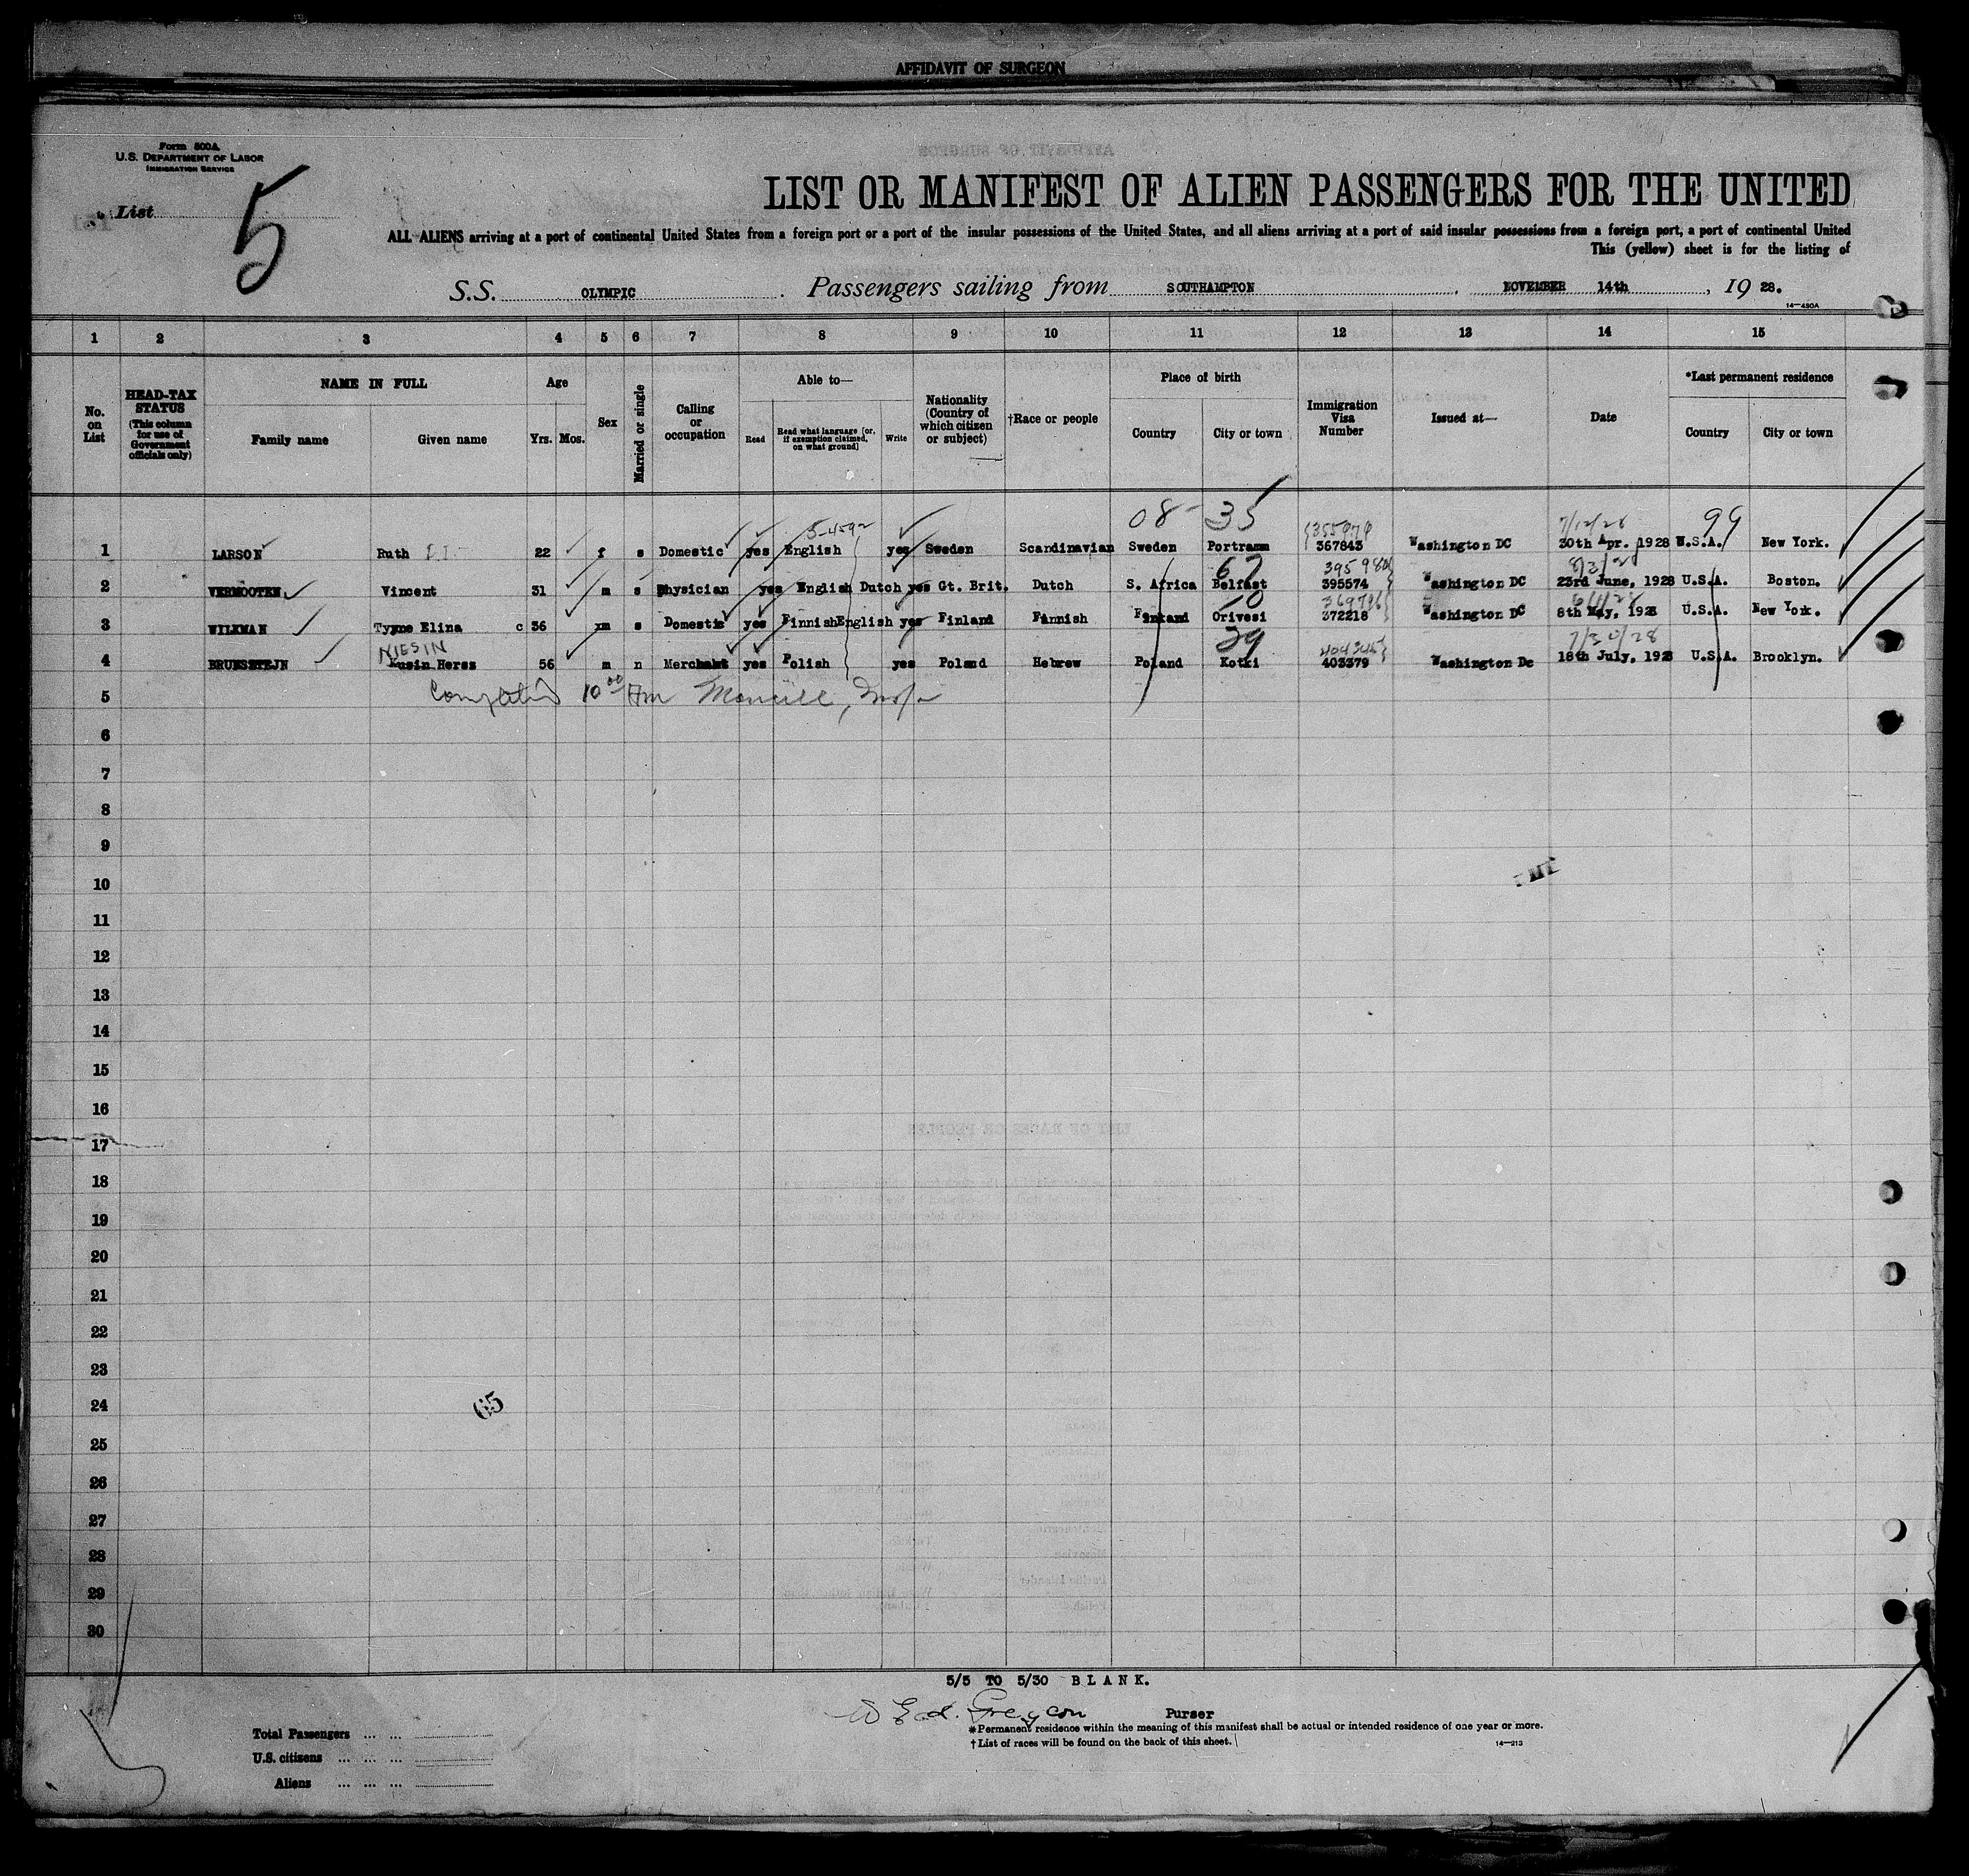 AFFIDAVIT OF SURGEON
Form 500A
U.S. DEPARTMENT OF LABOR
IMMIGRATION SERVICE
List 5
LIST OR MANIFEST OF ALIEN PASSENGERS FOR THE UNITED
ALL ALIENS arriving at a port of continental United States from a foreign port or a port of the insular possessions of the United States, and all aliens arriving at a port of said insular possessions from a foreign port, a port of continental United
This (yellow) sheet is for the listing of
S.S. OLYMPIC. Passengers sailing from SOUTHAMPTON. NOVEMBER 14th, 19 28.
14—430A
1 2 3 4 5 6 7 8 9 10 11 12 13 14 15
No. on List
HEAD-TAX STATUS (This column for use of Government officials only)
NAME IN FULL
Family name Given name
Age
Yrs. Mos.
Sex
Married or single
Calling or occupation
Able to—
Read Read what language [or, if exemption claimed, on what ground] Write
Nationality (Country of which citizen or subject)
†Race or people
Place of birth
Country City or town
Immigration Visa Number
Issued at—
Date
*Last permanent residence
Country City or town
5-4592 08-35 355979 7/12/28 99
1 LARSON Ruth 22 f s Domestic yes English yes Sweden Scandinavian Sweden Portramm 367843 Washington DC 30th Apr. 1928 U.S.A. New York.
67 395980
2 VERMOOTEN Vincent 31 m s Physician yes English Dutch yes Gt. Brit. Dutch S. Africa Belfast 395574 Washington DC 23rd June, 1928 U.S.A. Boston.
10 369796
3 WILKMAN Tyyne Elina c 36 xm s Domestic yes Finnish English yes Finland Finnish Finkand Orivesi 372218 Washington DC 8th May, 1928 U.S.A. New York.
NIESIN 29 404345 7/30/28
4 BRUNSZTEJN Kusin Herss 56 m n Merchant yes Polish yes Poland Hebrew Poland Kotki 403379 Washington Dc 18th July, 1928 U.S.A. Brooklyn.
5 Completed 10 00 Am
6
7
8
9
10
11
12
13
14
15
16
17
18
19
20
21
22
23
24
65
25
26
27
28
29
30
5/5 TO 5/30 BLANK.
Purser
*Permanent residence within the meaning of this manifest shall be actual or intended residence of one year or more.
†List of races will be found on the back of this sheet.
14—213
Total Passengers ... ...
U.S. citizens ... ... ...
Aliens ... ... ...